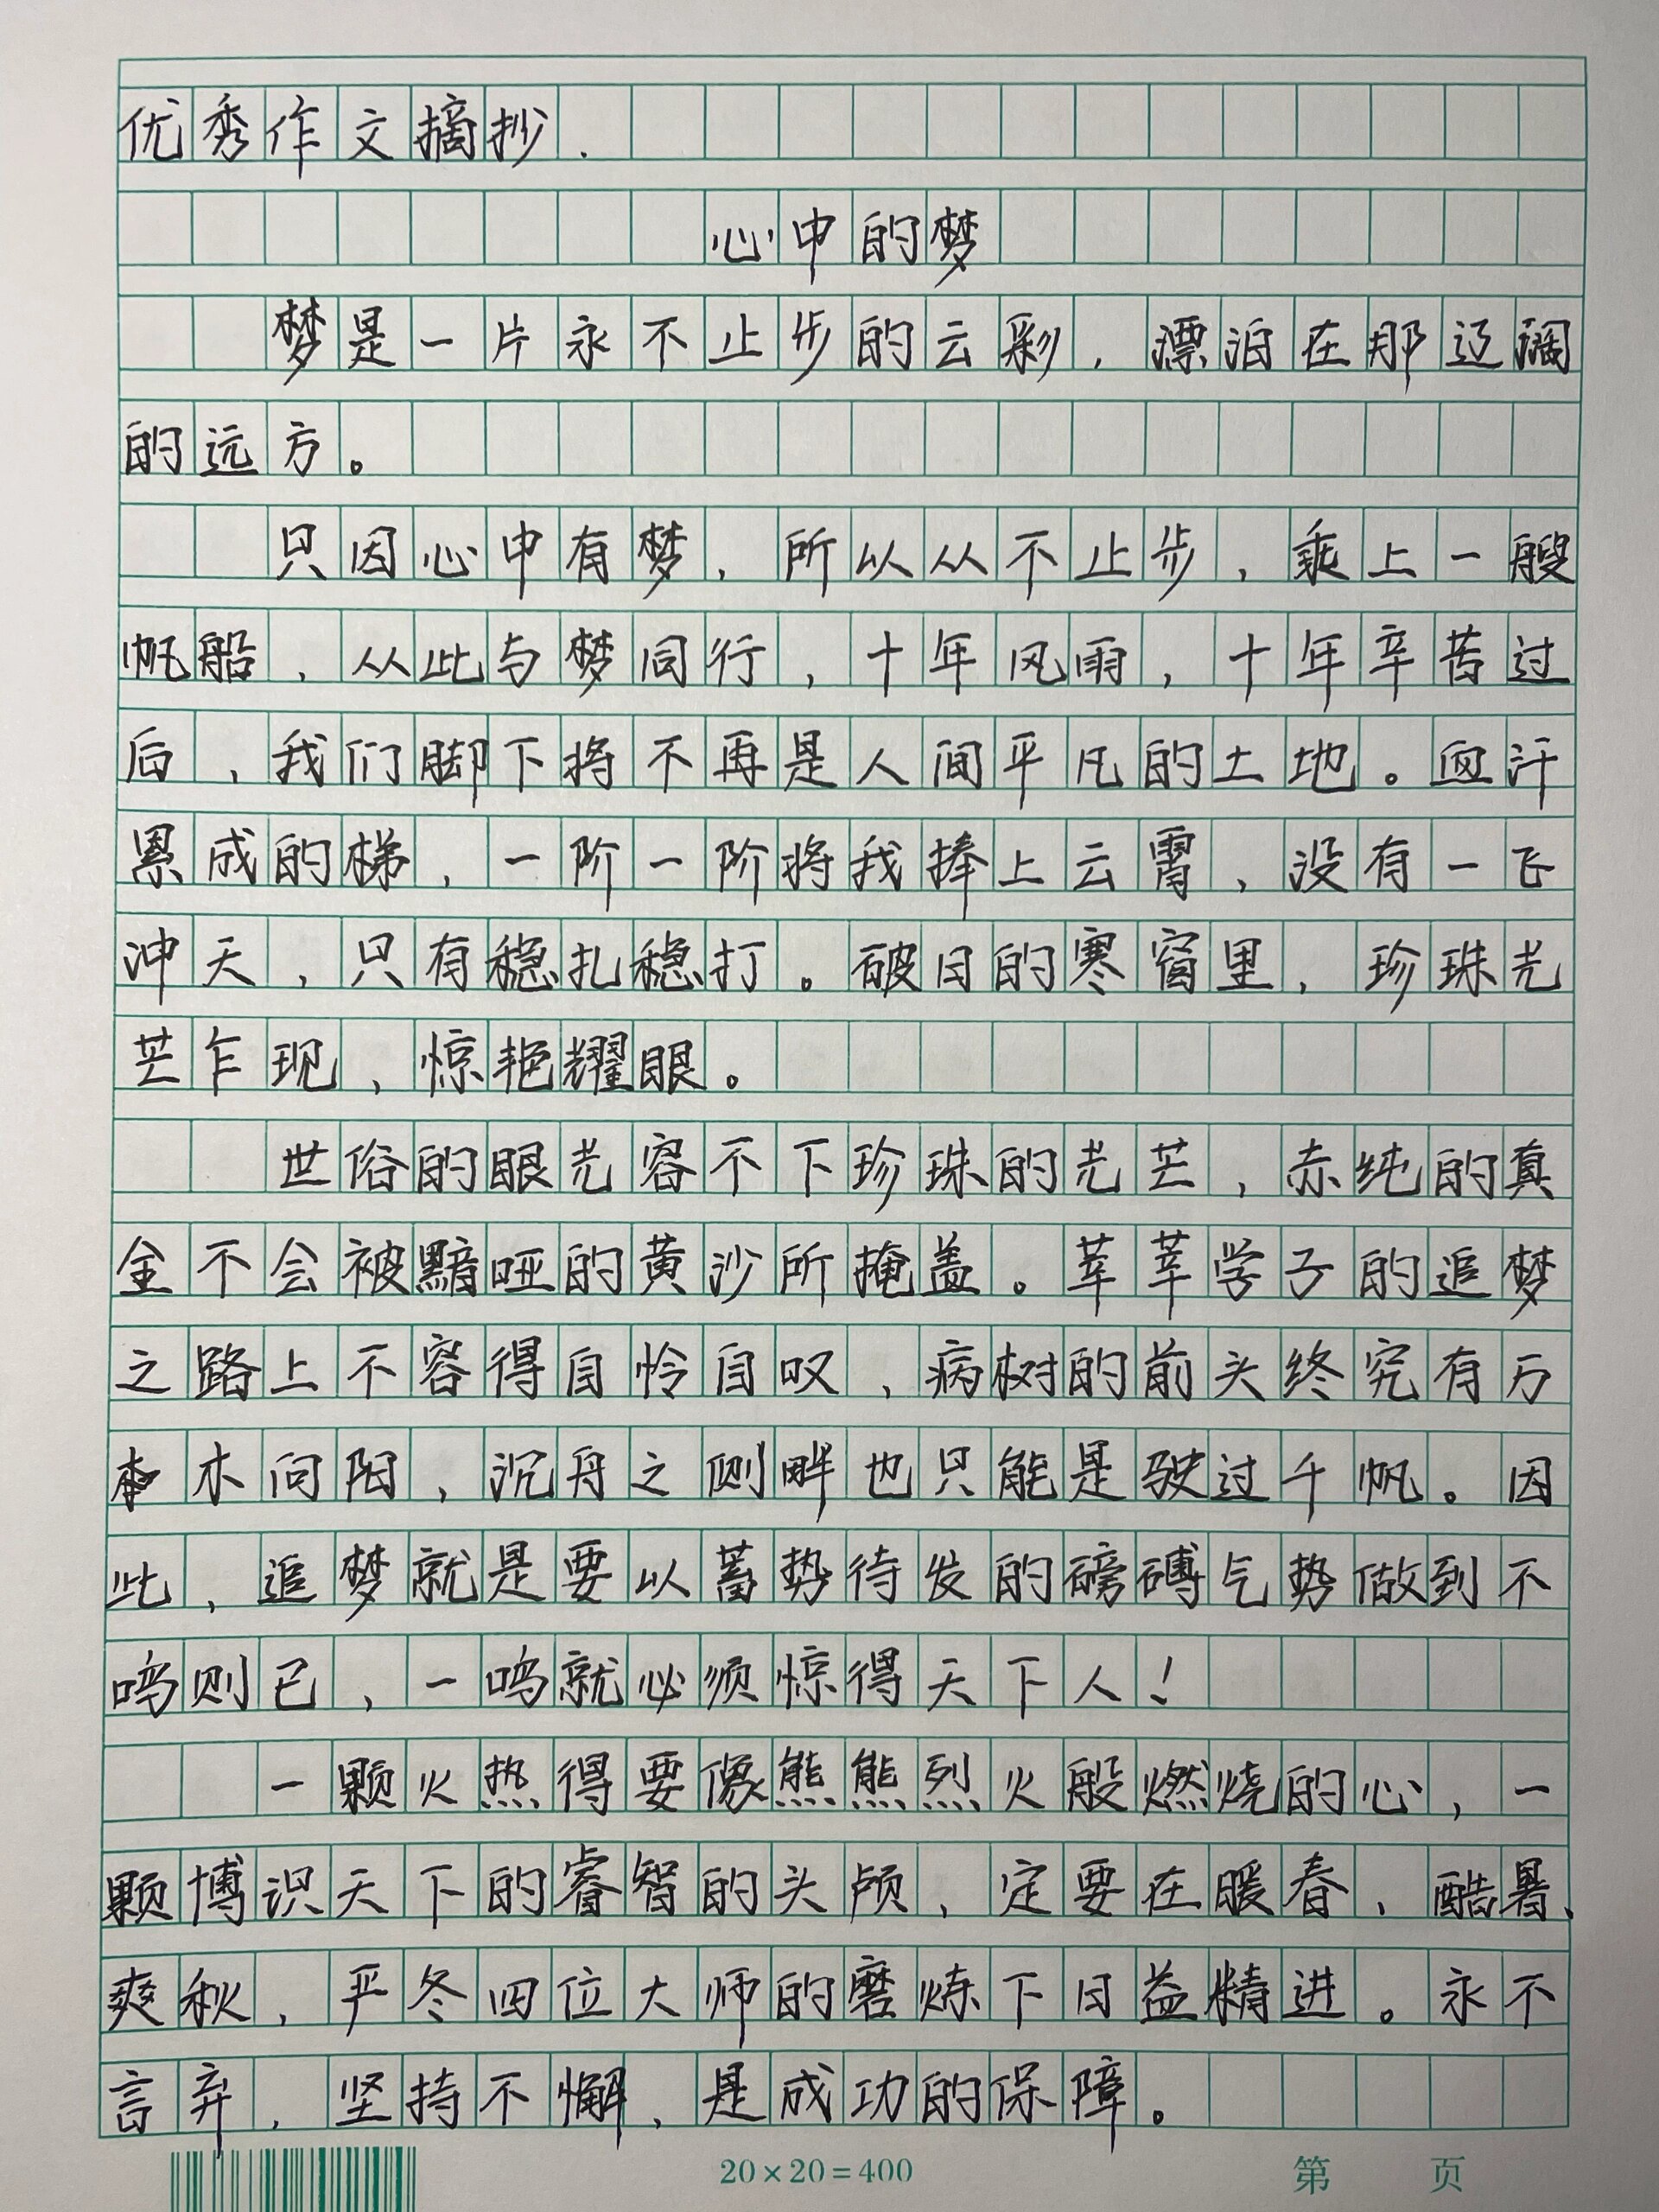 优秀作文摘抄.
心中的梦
梦是一片永不止步的云彩，漂泊在那辽阔
的远方。
只因心中有梦，所以从不止步，乘上一艘
帆船，从此与梦同行，十年风雨，十年辛苦过
后，我们脚下将不再是人间平凡的土地。血汗
累成的梯，一阶一阶将我捧上云霄，没有一飞
冲天，只有稳扎稳打。破日的寒窗里，珍珠光
芒乍现，惊艳耀眼。
世俗的眼光容不下珍珠的光芒，赤纯的真
金不会被黯哑的黄沙所掩盖。莘莘学子的追梦
之路上不容得自怜自叹，病树的前头终究有万
木向阳，沉舟之侧畔也只能是驶过千帆。因
此，追梦就是要以蓄势待发的磅礴气势做到不
鸣则已，一鸣就必须惊得天下人！
一颗火热得要像熊熊烈火般燃烧的心，一
颗博识天下的睿智的头颅，定要在暖春、酷暑、
爽秋，严冬四位大师的磨炼下日益精进。永不
言弃，坚持不懈，是成功的保障。
20×20=400
第 页